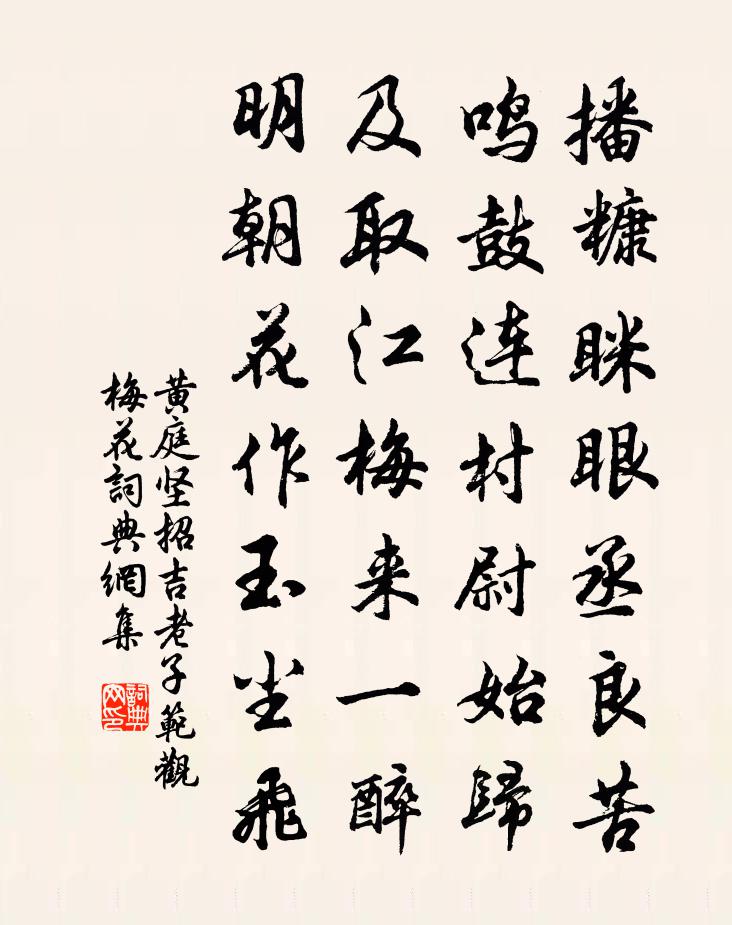 播糠眯眼丞良苦
鸣鼓连村尉始歸
及取江梅来一醉
明朝花作玉尘飛
黄庭坚招吉老子範觀
梅花詞典網集
詞典
网印